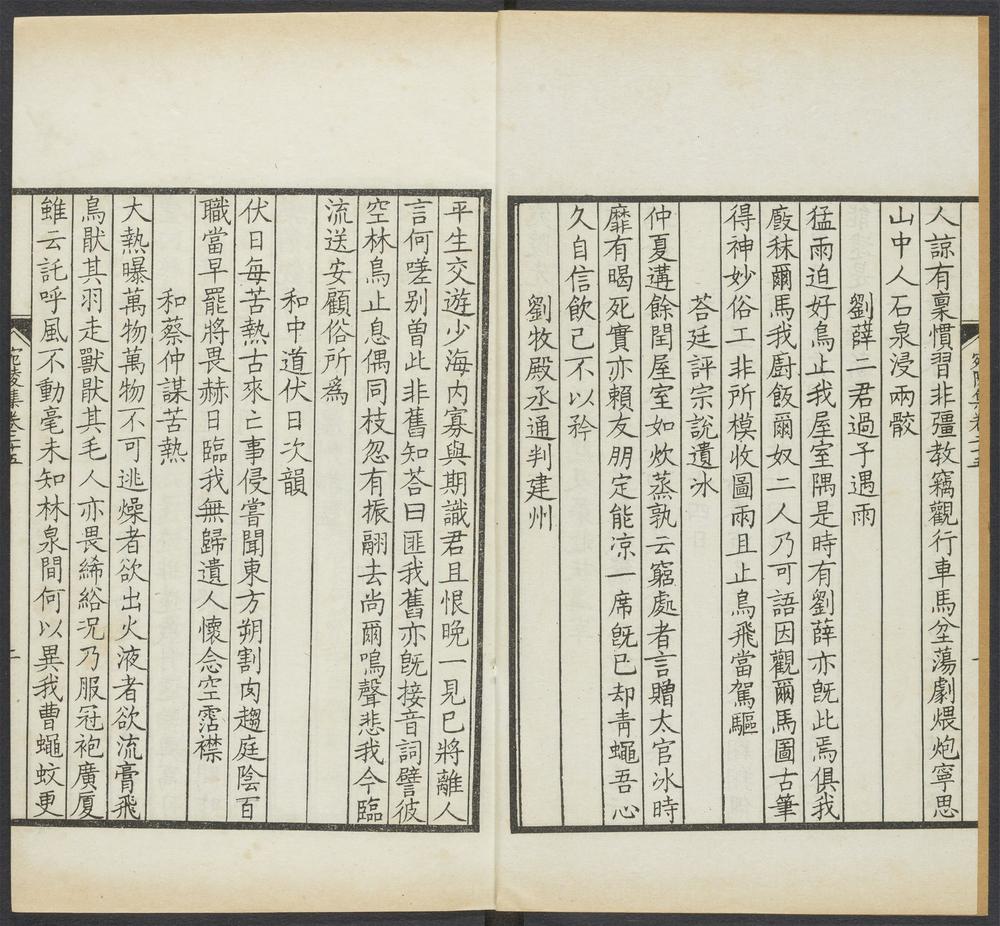 人諒有稟慣習非彊教竊觀行車馬坌蕩劇煨炮寧思
山中人石泉浸兩骹
劉薛二君過予遇雨
猛雨迫好鳥止我屋室隅是時有劉薛亦旣此焉俱我
廄秣爾馬我廚飯爾奴二人乃可語因觀爾馬圖古筆
得神妙俗工非所模收圖雨且止烏飛當駕驅
荅廷評宗說遺冰
仲夏遘餘閏屋室如炊蒸孰云窮處者言贈太官冰時
靡有暍死實亦賴友朋定能凉一席旣已却靑蠅吾心
久自信飲已不以矜
劉牧殿丞通判建州
平生交遊少海內寡與期識君且恨晚一見已將離人
言何嗟别曾此非舊知荅曰匪我舊亦旣接音詞譬彼
空林鳥止息偶同枝忽有振翮去尚爾鳴聲悲我今臨
流送安顧俗所爲
和中道伏日次韻
伏日每苦熱古來亡事侵嘗聞東方朔割肉趨庭陰百
職當早罷將畏赫日臨我無歸遺人懷念空霑襟
和蔡仲謀苦熱
大熱曝萬物萬物不可逃燥者欲出火液者欲流膏飛
鳥猒其羽走獸猒其毛人亦畏絺綌況乃服冠袍廣厦
雖云託呼風不動毫未知林泉間何以異我曹蠅蚊更
宛陵集卷二十五
二